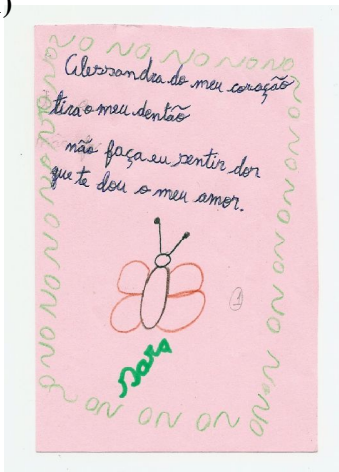 Alessandra do meu coração
tira o meu dentão
não faça eu sentir dor
que te dou o meu amor.
Sara